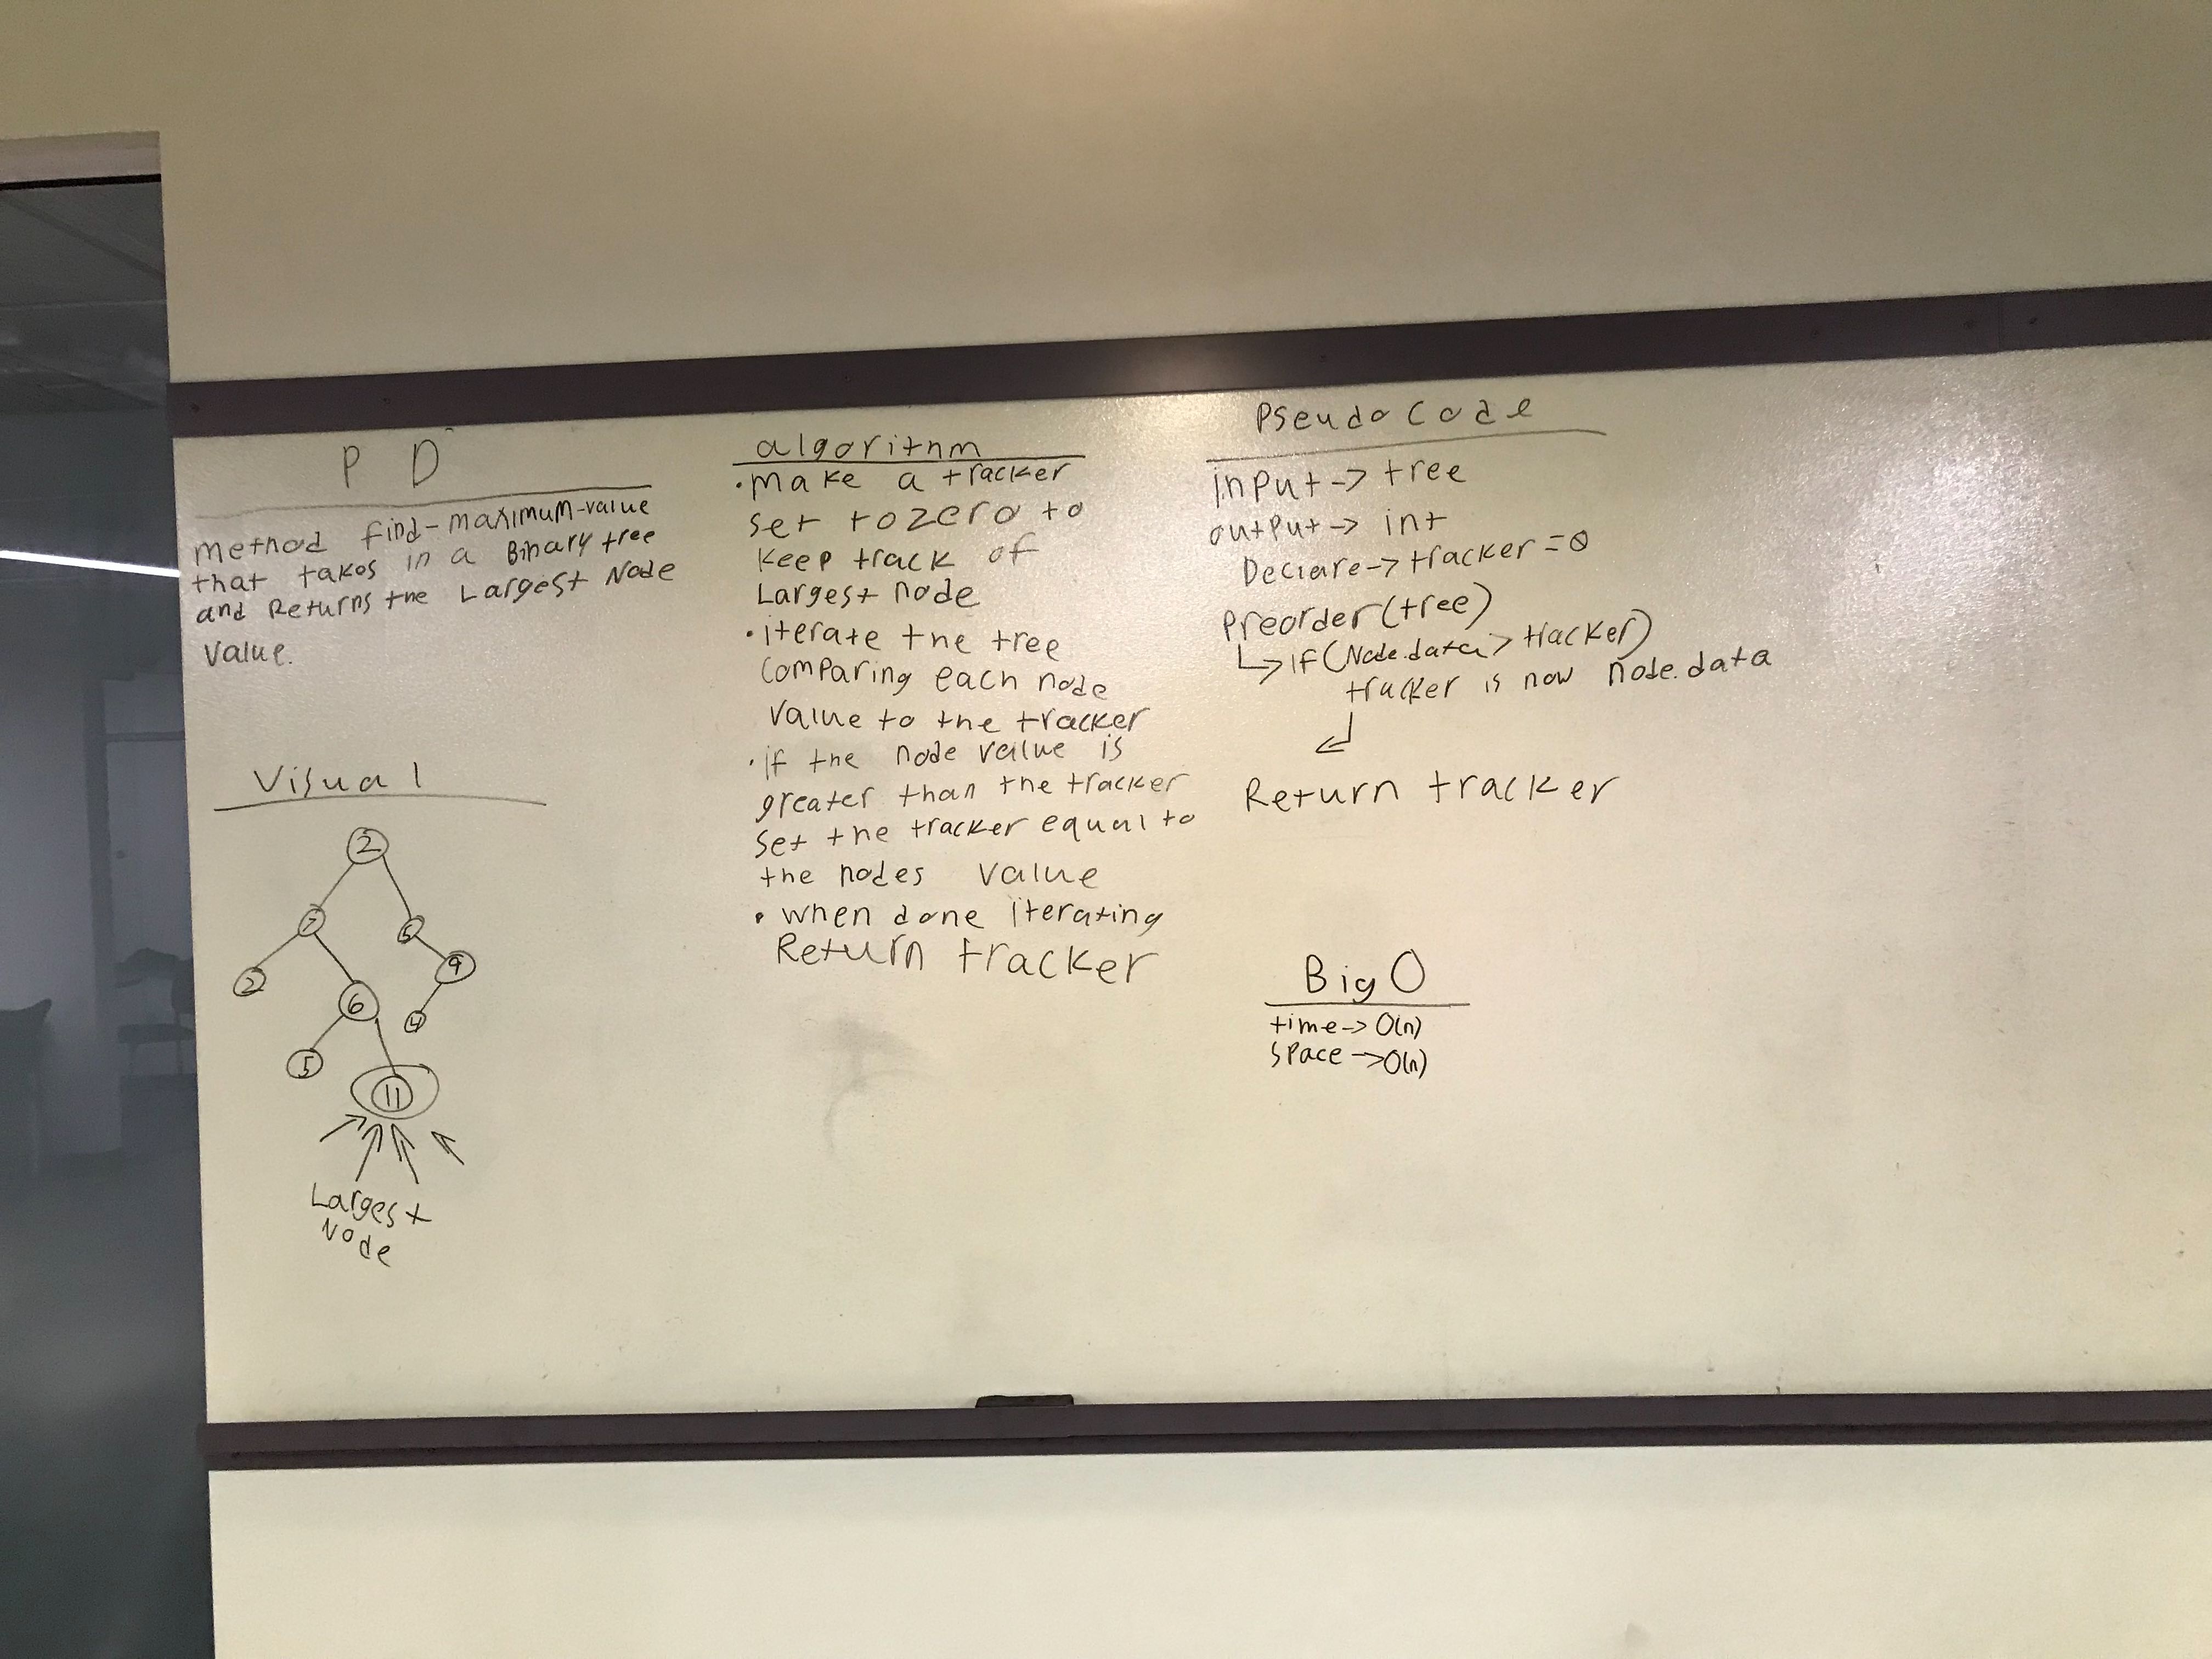 P D
Method find-maximum-value
that takes in a Binary tree
and Returns the Largest Node
Value.
Visual
2
7
5
2
6
9
5
4
11
Largest
Node
algorithm
• make a tracker
set to zero to
keep track of
Largest node
• iterate the tree
comparing each node
value to the tracker
• if the node value is
greater than the tracker
set the tracker equal to
the nodes value
• when done iterating
Return tracker
Pseudo Code
input -> tree
output -> int
Declare -> tracker = 0
Preorder(tree)
↳ if (Node.data > tracker)
tracker is now node.data
Return tracker
Big O
time -> O(n)
space -> O(n)